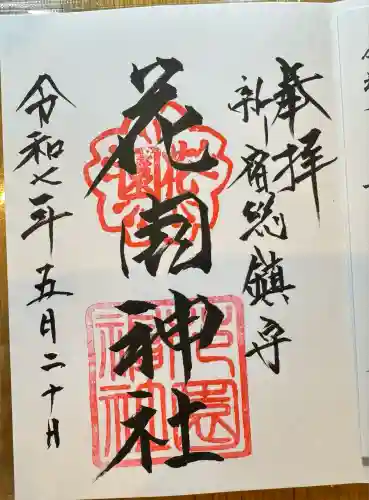 奉拝
新宿総鎮守
花園神社
令和七年五月二十日